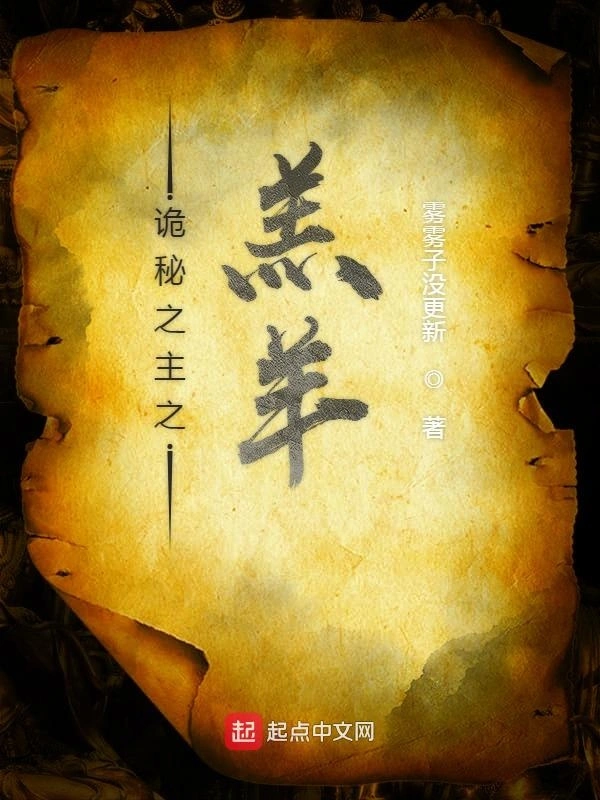 诡秘之主之
羔羊
雾雾子没更新 ◎ 著
起 起点中文网